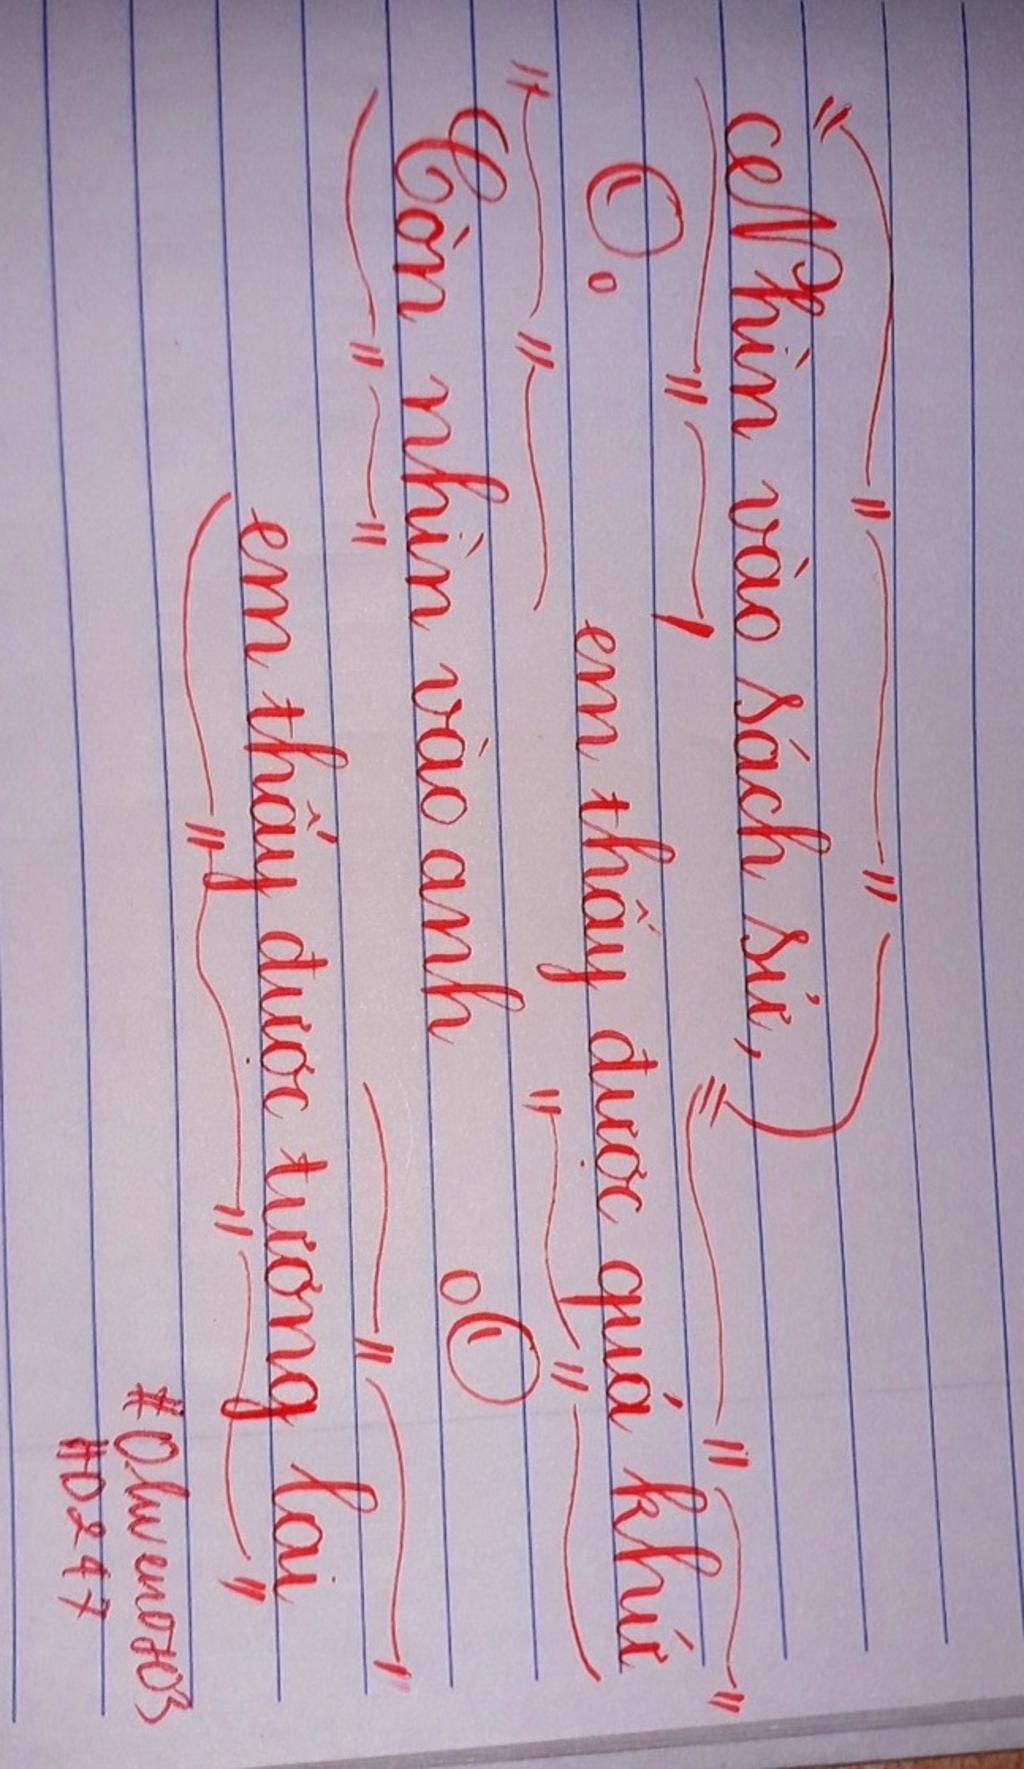 Nhìn vào sách sử,
em thấy được quá khứ
Còn nhìn vào anh
em thấy được tương lai
#0247